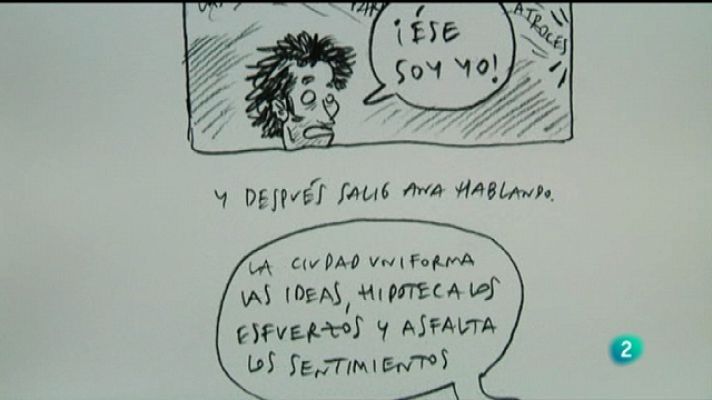 ATROCES
¡ÉSE
SOY YO!
Y DESPUÉS SALIÓ ANA HABLANDO.
LA CIUDAD UNIFORMA
LAS IDEAS, HIPOTECA LOS
ESFUERZOS Y ASFALTA
LOS SENTIMIENTOS
2